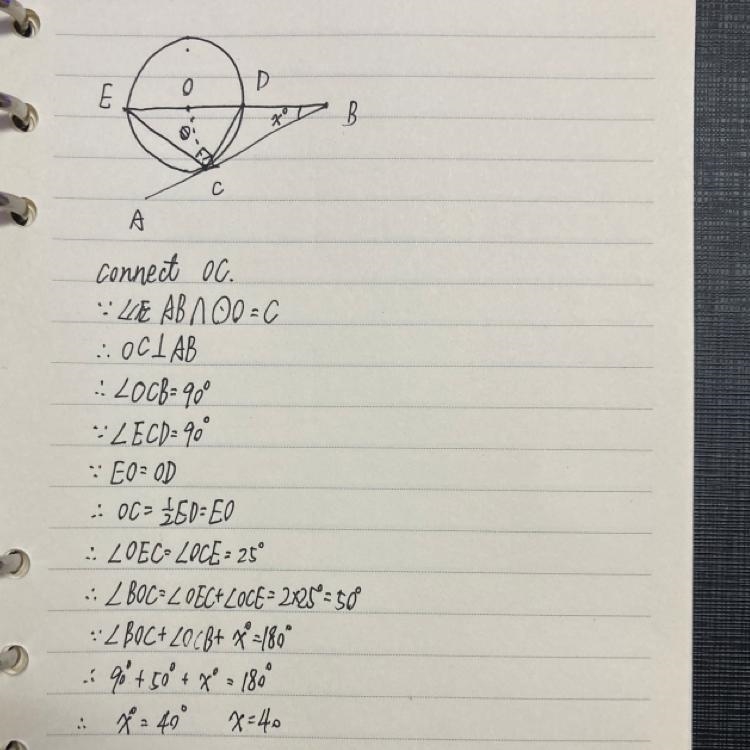 E O D B
x°
C
A
connect OC.
∵ AB∩⊙O=C
∴ OC⊥AB
∴ ∠OCB=90°
∵ ∠ECD=90°
∵ EO=OD
∴ OC=½ED=EO
∴ ∠OEC=∠OCE=25°
∴ ∠BOC=∠OEC+∠OCE=2×25°=50°
∵ ∠BOC+∠OCB+x°=180°
∴ 90°+50°+x°=180°
∴ x°=40° x=40